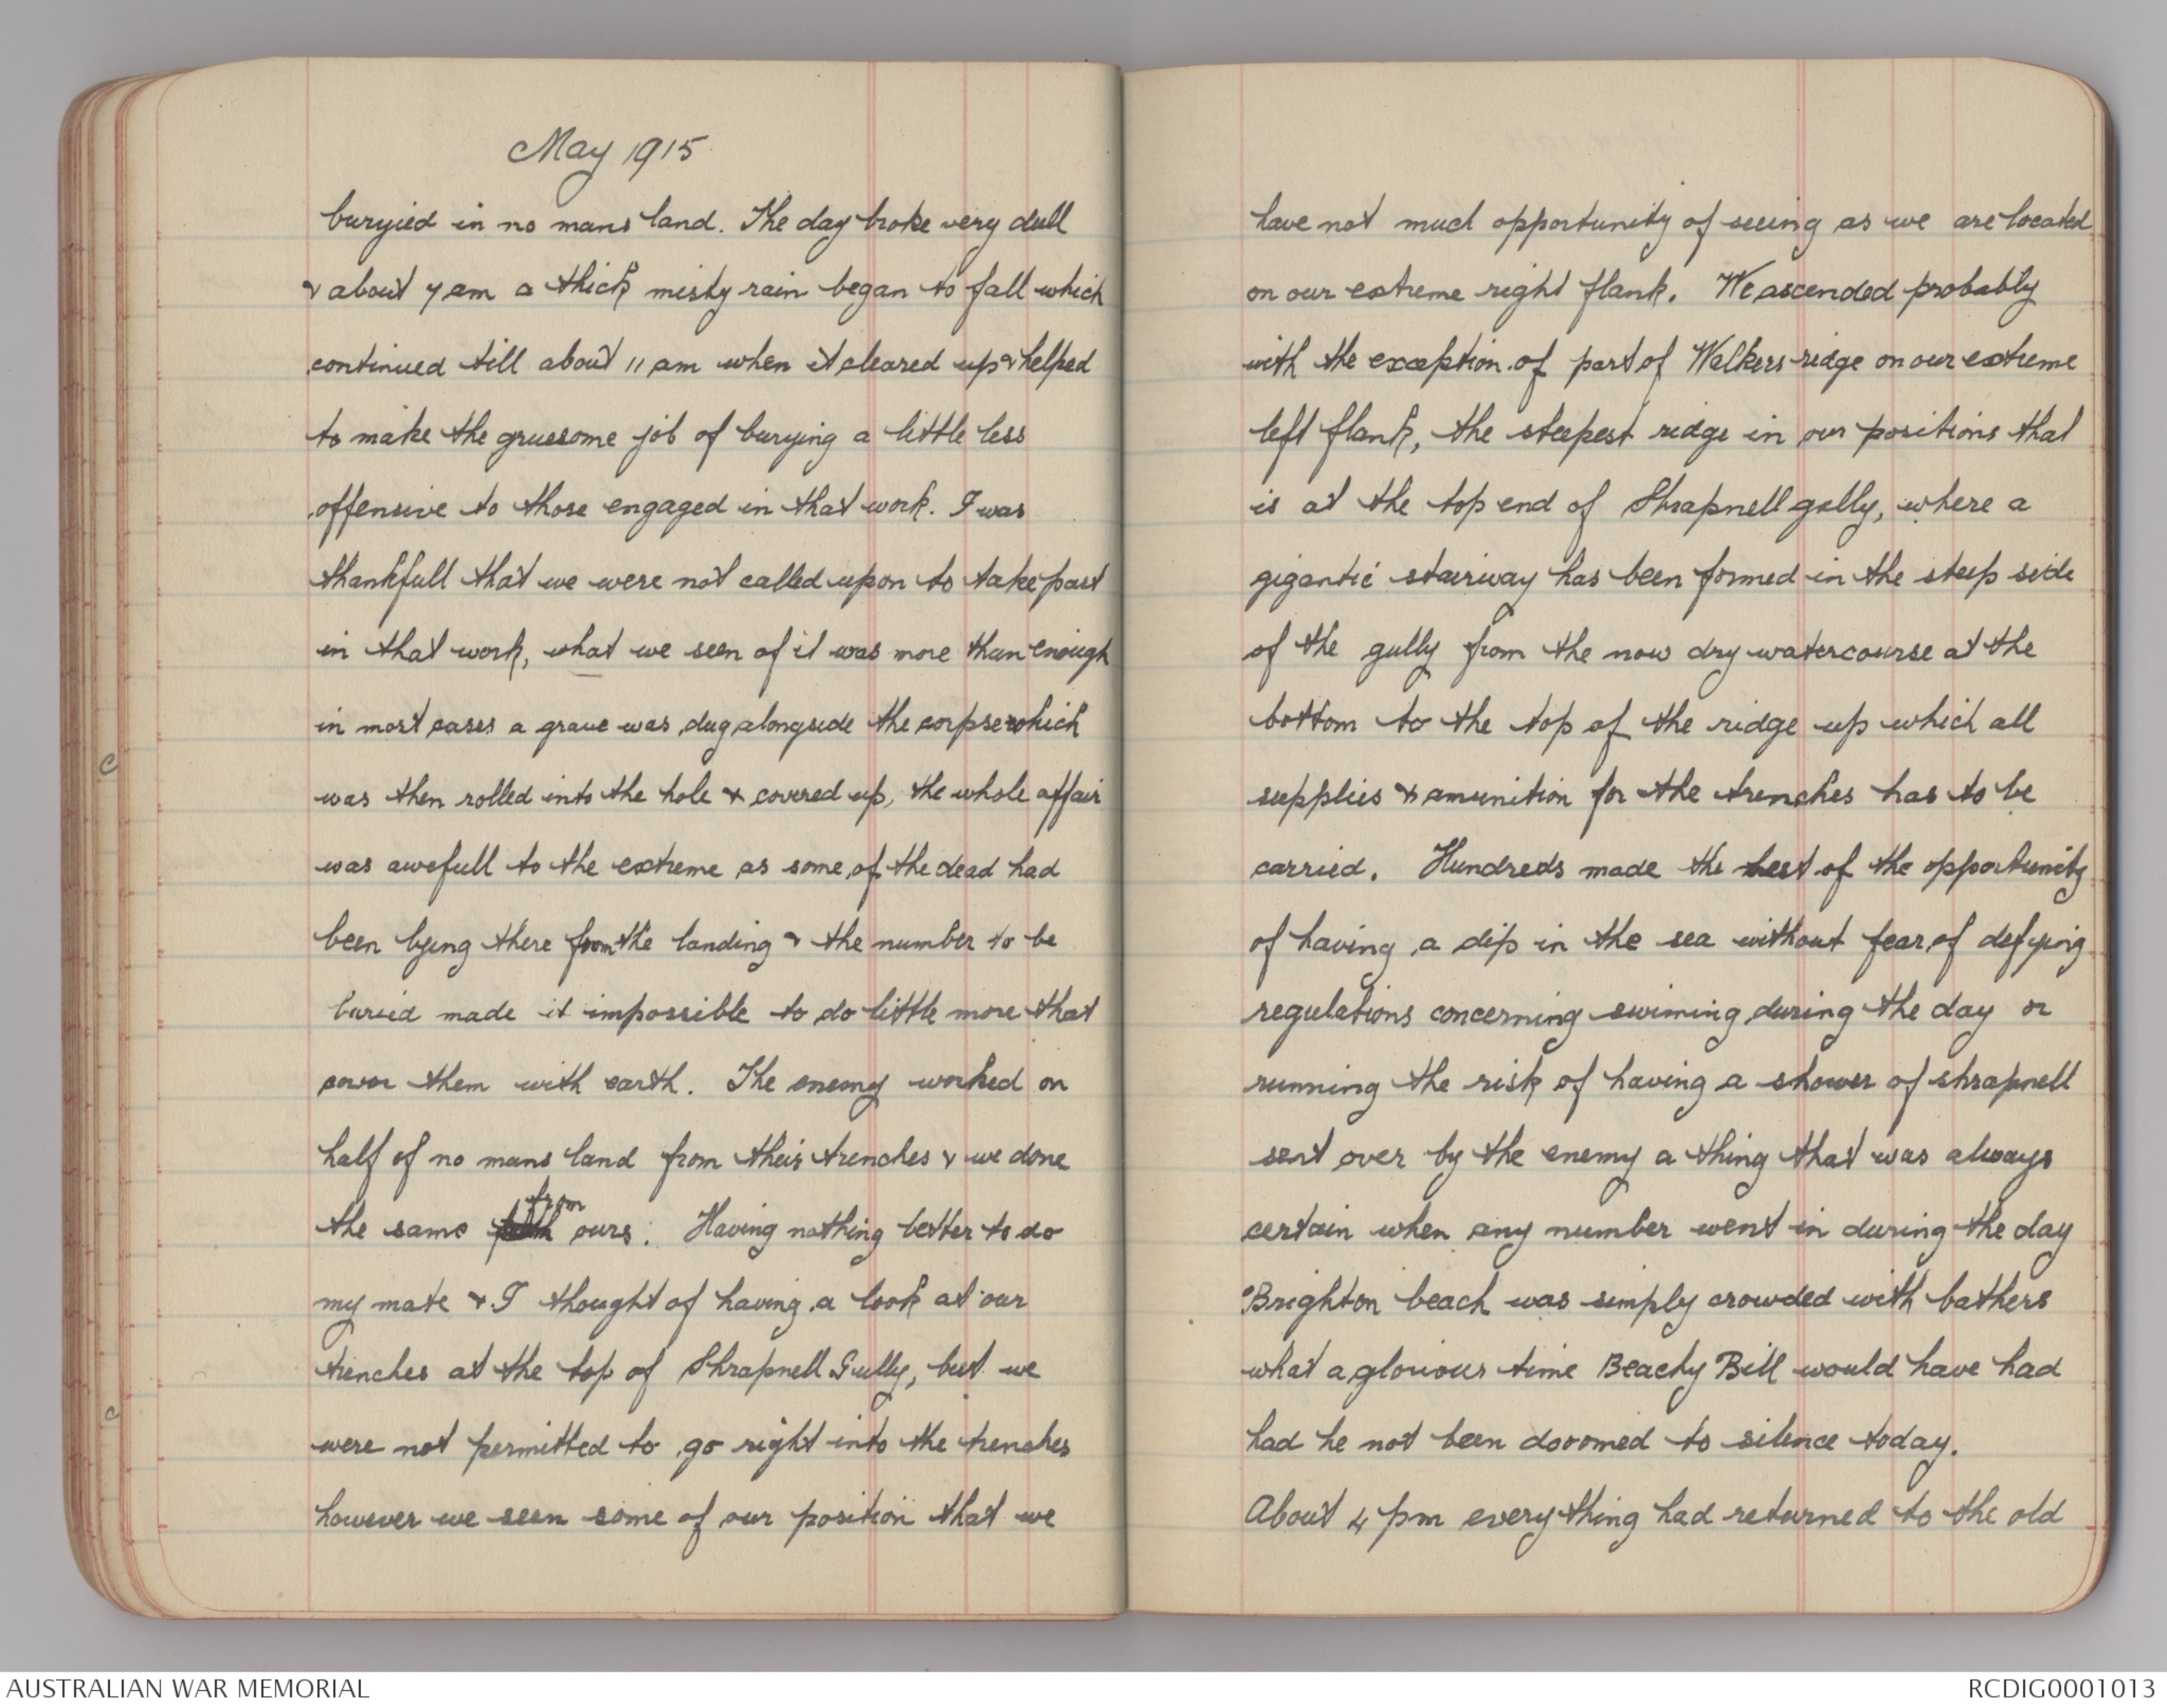 May 1915
buryied in no mans land. The day broke very dull
& about 7 am a thick misty rain began to fall which
continued till about 11 am when it cleared up & helped
to make the gruesome job of burying a little less
offensive to those engaged in that work. I was
thankfull that we were not called upon to take part
in that work, what we seen of it was more than enough
in most cases a grave was dug alongside the corpse which
was then rolled into the hole & covered up, the whole affair
was awefull to the extreme as some of the dead had
been lying there from the landing & the number to be
buried made it impossible to do little more that
cover them with earth. The enemy worked on
half of no mans land from their trenches & we done
the same from ours. Having nothing better to do
my mate & I thought of having a look at our
trenches at the top of Shrapnell Gully, but we
were not permitted to go right into the trenches
however we seen some of our position that we
have not much opportunity of seeing as we are located
on our extreme right flank. We ascended probably
with the exception of part of Walkers ridge on our extreme
left flank, the steepest ridge in our positions that
is at the top end of Shrapnell gully, where a
gigantic stairway has been formed in the steep side
of the gully from the now dry watercourse at the
bottom to the top of the ridge up which all
supplies & amunition for the trenches has to be
carried. Hundreds made the best of the opportunity
of having a dip in the sea without fear of defying
regulations concerning swiming during the day or
running the risk of having a shower of shrapnell
sent over by the enemy a thing that was always
certain when any number went in during the day
Brighton beach was simply crowded with bathers
what a glorious time Beachy Bill would have had
had he not been dooomed to silence today.
About 4 pm everything had returned to the old
AUSTRALIAN WAR MEMORIAL
RCDIG0001013